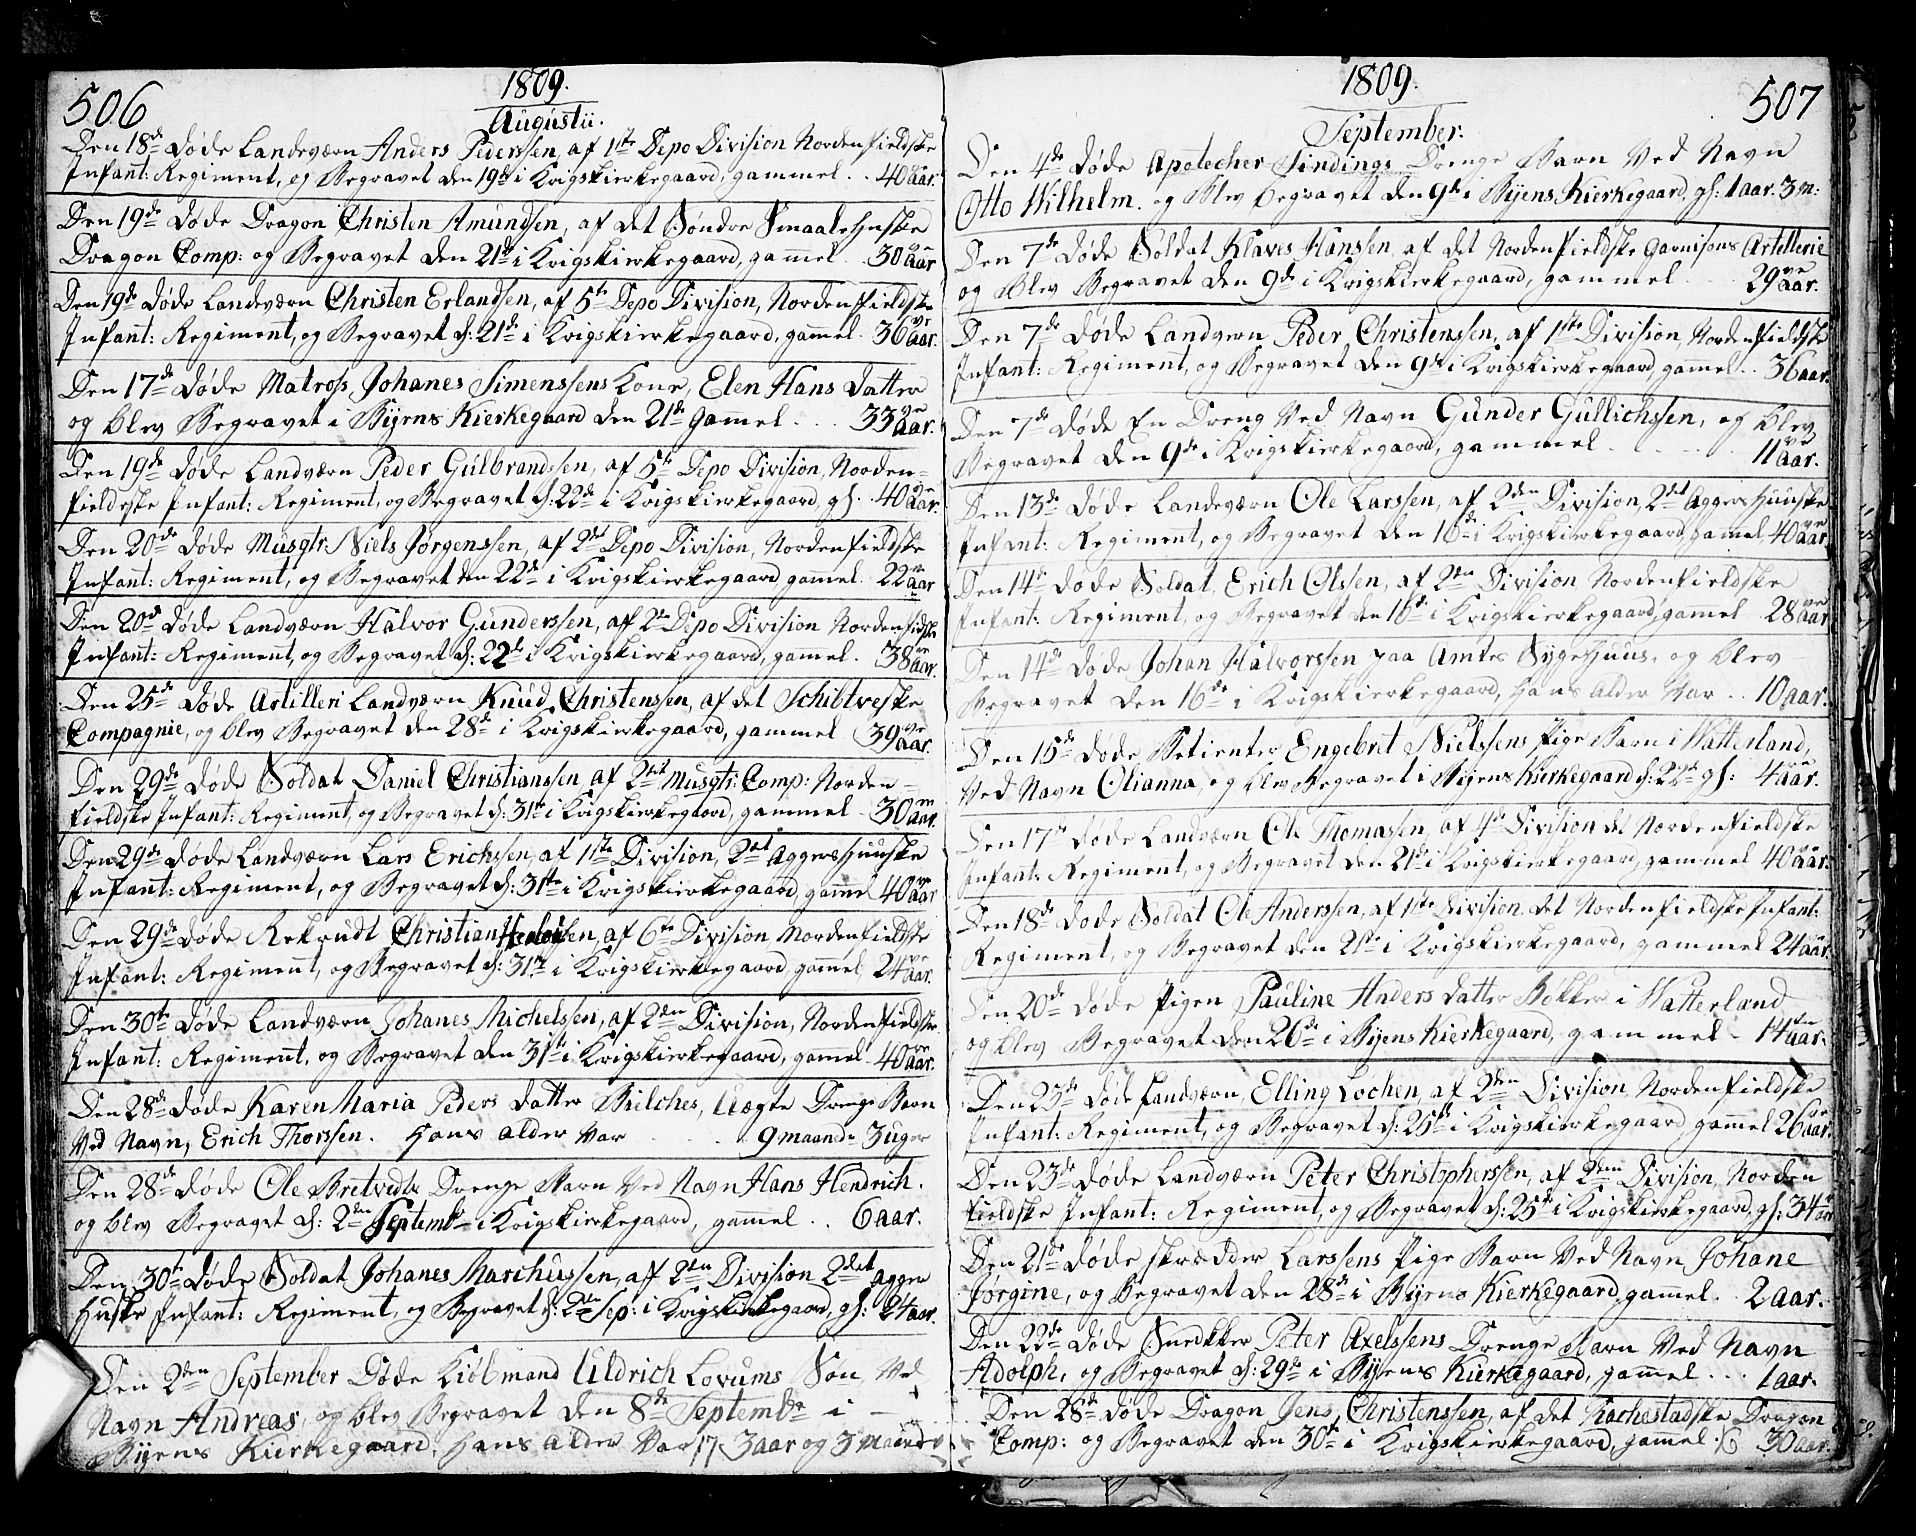 506
1809.
Augustii.
Den 18de Døde Landeværn Anders Pederssen, af 1ste Depo Division Nordenfieldske
Infant: Regiment, og Begravet den 19de i Krigskierkegaard, gammel . . 40 aar.
Den 19de Døde Dragon Christen Amundsen, af det Søndre Smaalehnske
Dragon Comp: og Begravet den 21de i Krigskierkegaard, gam̅el . . 30 aar
Den 19de Døde Landeværn Christen Erlandsen, af 5te Depo Division, Nordenfieldske
Infant: Regiment, og Begravet d: 21de i Krigskierkegaard, gam̅el . 36 aar.
Den 17de Døde Matros Johanes Simenssens Kone, Elen Hans Datter
og blev Begravet i Byens Kierkegaard den 21de gam̅el . . . 33 aar.
Den 19de Døde Landværn Peder Gulbrandssen, af 5te Depo Division, Norden=
fieldske Infant: Regiment, og Begravet d: 22de i Krigskierkegaard, gl. 40 aar.
Den 20de Døde Musqtr: Niels Jørgenssen, af 2det Depo Division, Nordenfieldske
Infant: Regiment, og Begravet den 22de i Krigskierkegaard, gam̅el . 22 aar
Den 20de Døde Landværn Halvor Gunderssen, af 2de Depo Division Nordenfieldske
Infant: Regiment, og Begravet d: 22de i Krigskierkegaard, gam̅el . 38 aar.
Den 25de Døde Artilleri Landværn Knud Christenssen, af det Schibtveske
Compagnie, og blev Begravet den 28de i Krigskierkegaard, gammel 39 aar.
Den 29de Døde Soldat Daniel Christianssen af 2det Musqtr: Comp: Norden=
fieldske Infant: Regiment, og Begravet d: 31te i Krigskierkegaard, gammel . 30 aar.
Den 29de Døde Landværn Lars Erichssen, af 1ste Division, 2det Aggershuuske
Infant: Regiment, og Begravet d: 31te i Krigskierkegaard, gam̅el 40 aar
Den 29de Døde Rekrudt Christian sen, af 6te Division Nordenfieldske
Infant: Regiment, og Begravet d: 31te i Krigskierkegaard, gam̅el 24 aar.
Den 30te Døde Landværn Johanes Michelssen, af 2den Division, Nordenfieldske
Infant: Regiment, og Begravet den 31te i Krigskierkegaard, gam̅el . 40 aar.
Den 28de Døde Karen Maria Peders Datter Bielches, Uægte Drenge Barn
Ved Navn, Erich Thorssen. Hans Alder Var . . . 9 maand: 3 uger
Den 28de Døde Ole Bretvedts Drenge Barn Ved Navn Hans Hendrich.
og blev Begravet d: 2den Septembr i Krigskierkegaard, gam̅el . . 6 aar.
Den 30te Døde Soldat Johanes Marchussen, aff 2den Division 2det Agger
Huske Infant: Regiment, og Begravet d: 2den Sep: i Krigskierkegaard, gl: 24 aar.
Den 2den September Døde Kiøbmand Uldrich Lovums Søn Ved
Navn Andreas, og blev Begravet den 8de Septembr i —
Byens Kierkegaard, Hans Alder Var 17. 3 aar og 3 Maander
507
1809.
September.
Den 4de Døde Apotecher Sindings Drenge Barn Ved Navn
Otto Wilhelm. og blev begravet den 9de i Byens Kierkegaard, gl: 1 aar. 3 m:
Den 7de Døde Soldat Klaves Hanssen, af det Nordenfieldske Garnisons Artillerie
og blev Begravet den 9de i Krigskierkegaard, gammel . . . 29 aar.
Den 7de Døde Landværn Peder Christenssen, af 1ste Division Nordenfieldske
Infant: Regiment, og Begravet den 9de i Krigskierkegaard, gam̅el . . 36 aar.
Den 7de Døde En Dreng Ved Navn Gunder Gullichssen, og blev
Begravet den 9de i Krigskierkegaard, gammel . . . . . 11 aar.
Den 13de Døde Landeværn Ole Larssen, af 2den Division, 2det Aggershuuske
Infant: Regiment, og Begravet den 16de i Krigskierkegaard, gamel, 40 aar
Den 14de Døde Soldat, Erich Olssen, af 2den Division Nordenfieldske
Infant: Regiment, og Begravet den 16de i Krigskierkegaard, gamel . 28 aar
Den 14de Døde Johan Halvorssen paa Amtes Sygehuus, og blev
Begravet den 16de i Krigskierkegaard, Hans Alder Var . . 10 aar.
Den 15de Døde Betienter Engebret Nielssens Pige Barn i Vatterland,
Ved Navn Olianna, og blev Begravet i Byens Kierkegaard d: 22de gl: 4 aar.
Den 17de Døde Landværn Ole Thomasen, af 4de Division det Nordenfieldske
Infant: Regiment, og Begravet den 21de i Krigskierkegaard, gammel 40 aar.
Den 18de Døde Soldat Ole Anderssen, af 1ste Division, det Nordenfieldske Infant:
Regiment, og Begravet den 21de i Krigskierkegaard, gammel 24 aar.
Den 20de Døde Pigen Pauline Anders Datter Bekker i Vatterland
og blev Begravet den 26de i Byens Kierkegaard, gammel - 14 aar.
Den 23de Døde Landværn, Elling Lochen, af 2den Division, Nordenfieldske
Infant: Regiment, og Begravet d: 25de i Krigskierkegaard, gammel 26 aar.
Den 23de Døde Landværn Peter Christopherssen, af 2den Division, Norden
fieldske Infant: Regiment, og Begravet d: 25de i Krigskierkegaard, gl: 34 aar
Den 21de Døde Skrædder Larssens Pige Barn Ved Navn Johane
Jørgine, og Begravet den 28de i Byens Kierkegaard, gam̅el . 2 aar.
Den 22de Døde Snedkker Peter Axelssens Drenge Barn Ved Navn
Adolph, og Begravet d: 29de i Byens Kierkegaard, gammel . . . 1 aar.
Den 28de Døde Dragon Jens Christenssen, af det Dragon
Comp: og Begravet den 30te i Krigskierkegaard, gam̅el . 30 aar.